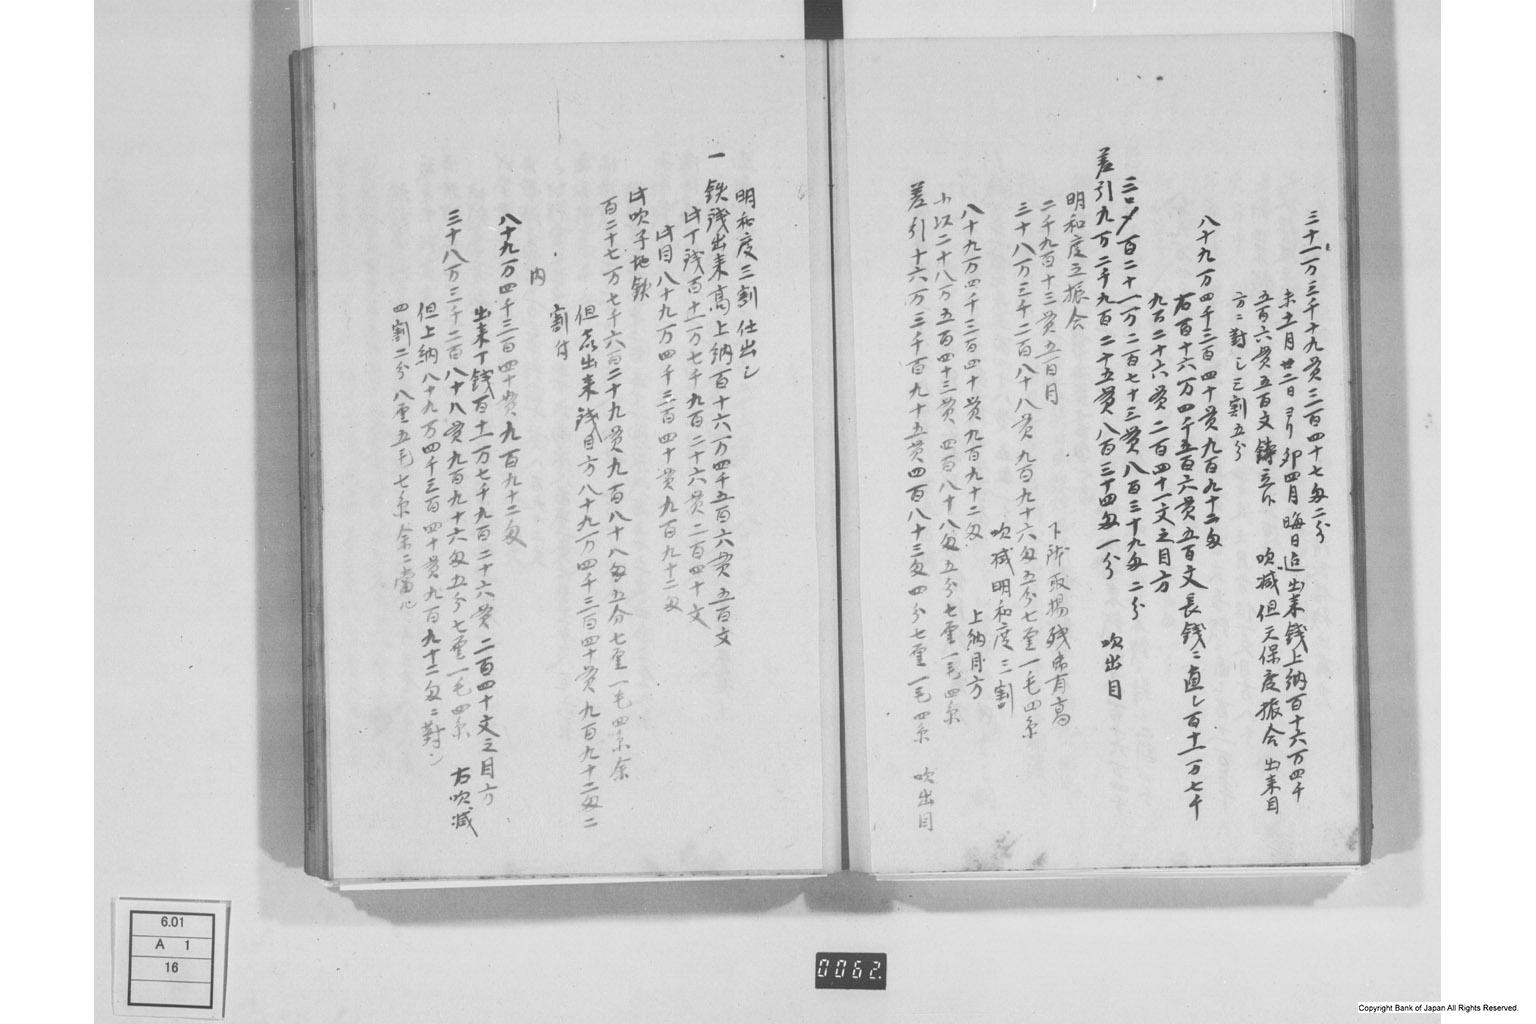 三十一万三千十九貫三百四十七匁二分
未五月廿二日ゟ卯四月晦日迄出来銭上納百十六万四千
五百六貫五百文鋳立下 吹減但天保度振合出来目
方ニ對し三割五分
八十九万四千三百四十貫九百九十二匁
右百十六万四千五百六貫五百文長銭ニ直し百十一万七千
九百二十六貫二百四十一文之目方
三口〆百二十一万二百七十三貫八百三十九匁二分
差引九万二千九百二十五貫八百三十四匁一分 吹出目
明和度之振合
二千九百十三貫五百目 下ケ鉄取揚残床有高
三十八万三千二百八十八貫九百九十六匁五分七厘一毛四糸
吹減明和度三割
八十九万四千三百四十貫九百九十二匁 上納目方
小以二十八万五百四十三貫四百八十八匁五分七厘一毛四糸
差引十六万三千百九十五貫四百八十三匁四分七厘一毛四糸 吹出目
明和度三割仕出し
一 鉄銭出来高上納百十六万四千五百六貫五百文
此丁銭百十一万七千九百二十六貫二百四十文
此目八十九万四千三百四十貫九百九十二匁
此吹子地鉄
百二十七万七千六百二十九貫九百八十八匁五分七厘一毛四糸余
但出来銭目方八十九万四千三百四十貫九百九十二匁ニ
割付
内
八十九万四千三百四十貫九百九十二匁
出来丁銭百十一万七千九百二十六貫二百四十文之目方
三十八万三千二百八十八貫九百九十六匁五分七厘一毛四糸 右吹減
但上納八十九万四千三百四十貫九百九十二匁ニ對シ
四割二分八厘五毛七糸余ニ當ル
6.01
A 1
16
0062.
Copyright Bank of Japan All Rights Reserved.